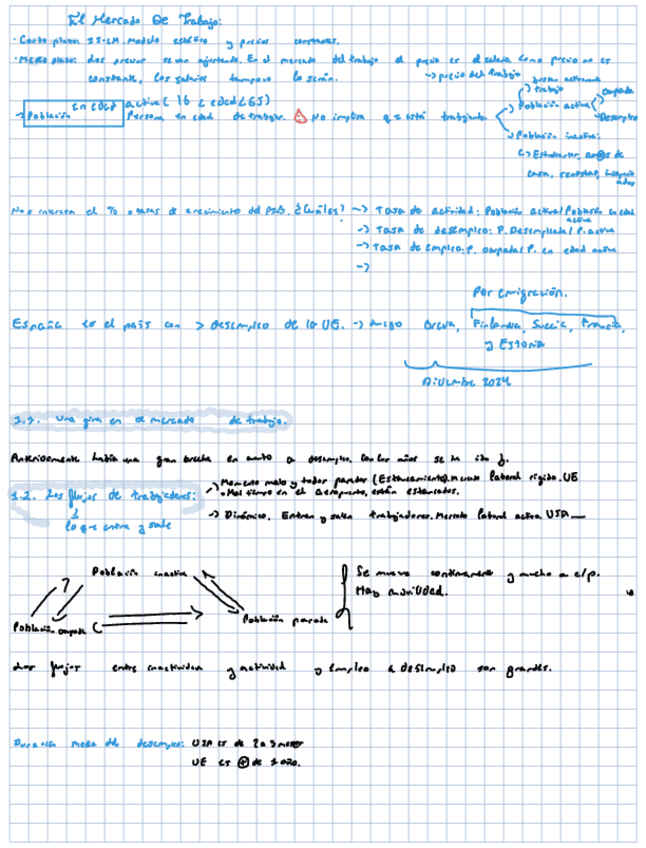 El Mercado De Trabajo:
· Corto plazo: IS-LM. Modelo estático y precios constantes.
· Medio plazo: Los precios se van ajustando. En el mercado del trabajo el precio es el salario como precio no es
constante, los salarios tampoco lo serán.
→ precio del trabajo
en edad activa (16 < edad < 65)
→ Población
Persona en edad de trabajar. No implica que está trabajando.
→ Población activa
trabajo
Ocupada
Desempleo
→ Población inactiva:
↳ Estudiantes, am@s de
casa, rentistas,
Nos interesa el % o tasas de crecimiento del PIB. ¿Cuáles? → Tasa de actividad: Población activa / Población en edad
activa
→ Tasa de desempleo: P. Desempleada / P. activa
→ Tasa de Empleo: P. ocupada / P. en edad activa
→
Por emigración.
España es el país con > desempleo de la UE. → Luego Grecia, Finlandia, Suecia, Francia,
y Estonia
Diciembre 2024
1.1. Una gira en el mercado de trabajo.
Anteriormente había una gran brecha en cuanto a desempleo. Con los años se ha ido ↓.
1.2. Los flujos de trabajadores:
↓
lo que entra y sale
→ Momento malo y todos parados (Estancamiento). Mercado laboral rígido. UE
• Mal tiempo en el aeropuerto, están estancados.
→ Dinámico. Entran y salen trabajadores. Mercado laboral activo. USA
Población inactiva
Población ocupada
Población parada
Se mueve continuamente y mucho a c/p.
Hay movilidad.
Los flujos entre inactividad y actividad y Empleo a desempleo son grandes.
Duración media del desempleo: USA es de 2 a 3 meses
UE es ⊕ de 1 año.